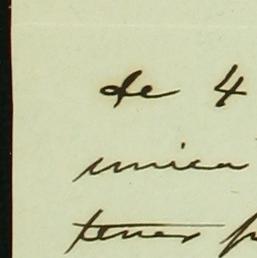 de 4
unica
tener p